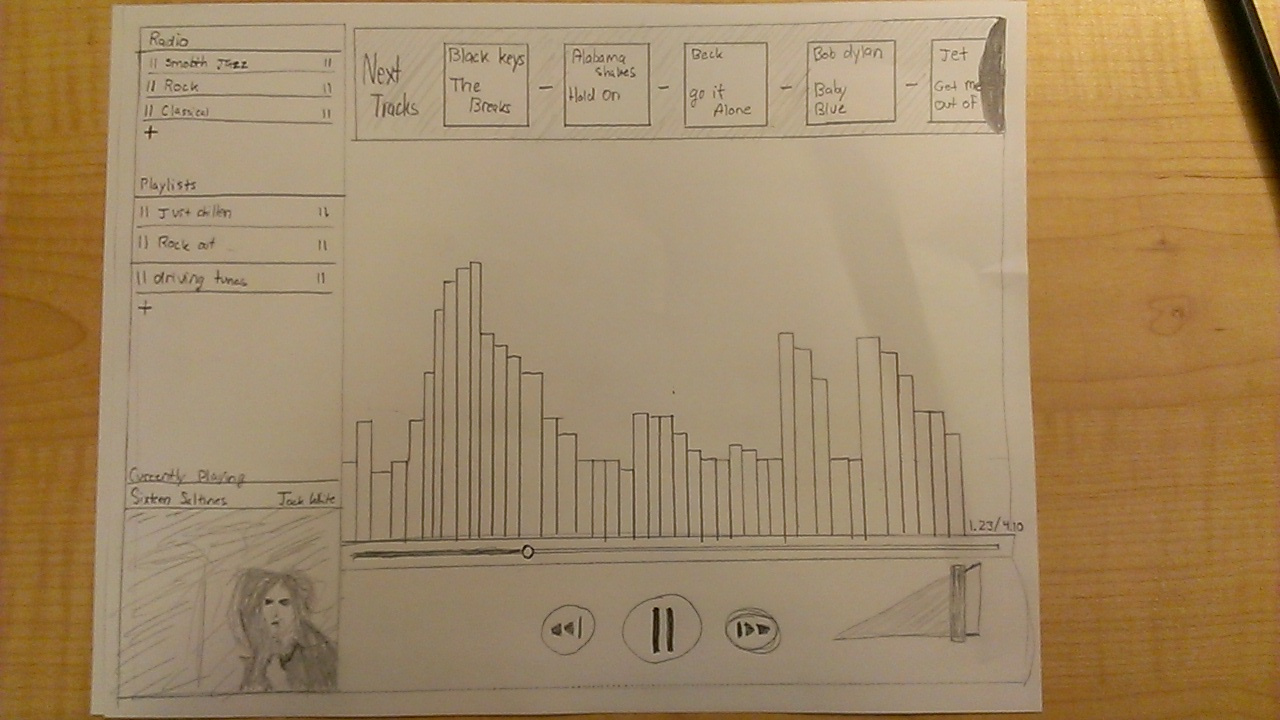 Radio
Smooth Jazz
Rock
Classical
+
Playlists
Just chillen
Rock out
driving tunes
+
Currently Playing
Sixteen Saltines Jack White
Next
Tracks
Black keys
The
Breaks
Alabama
shakes
Hold On
Beck
go it
Alone
Bob dylan
Baby
Blue
Jet
Get me
out of
1.23/4.10